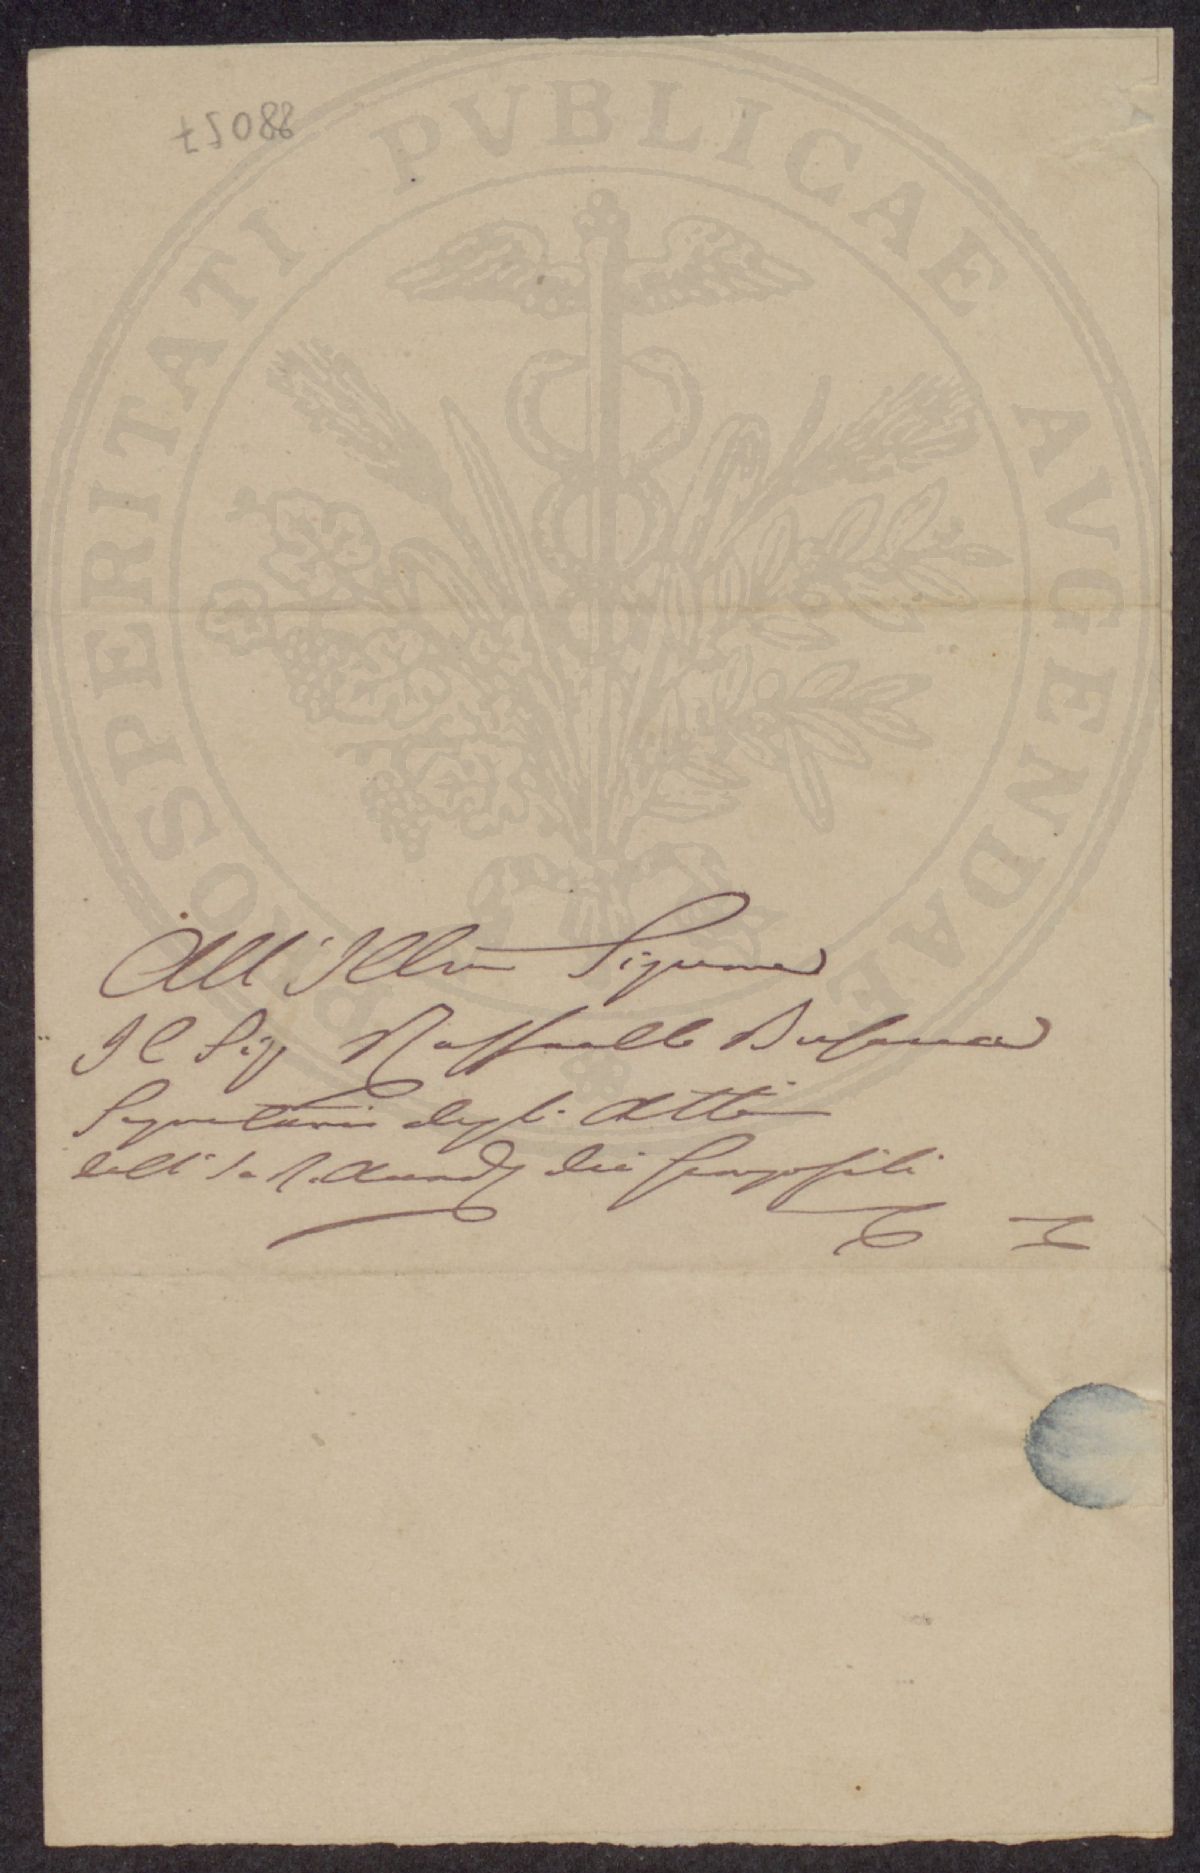 88057
PROSPERITATI PVBLICAE AVGENDAE
All' Illmo Signore
Il Sig Raffaello Busacca
Segretario degli Atti
dell' I. e R. Accad. dei Georgofili